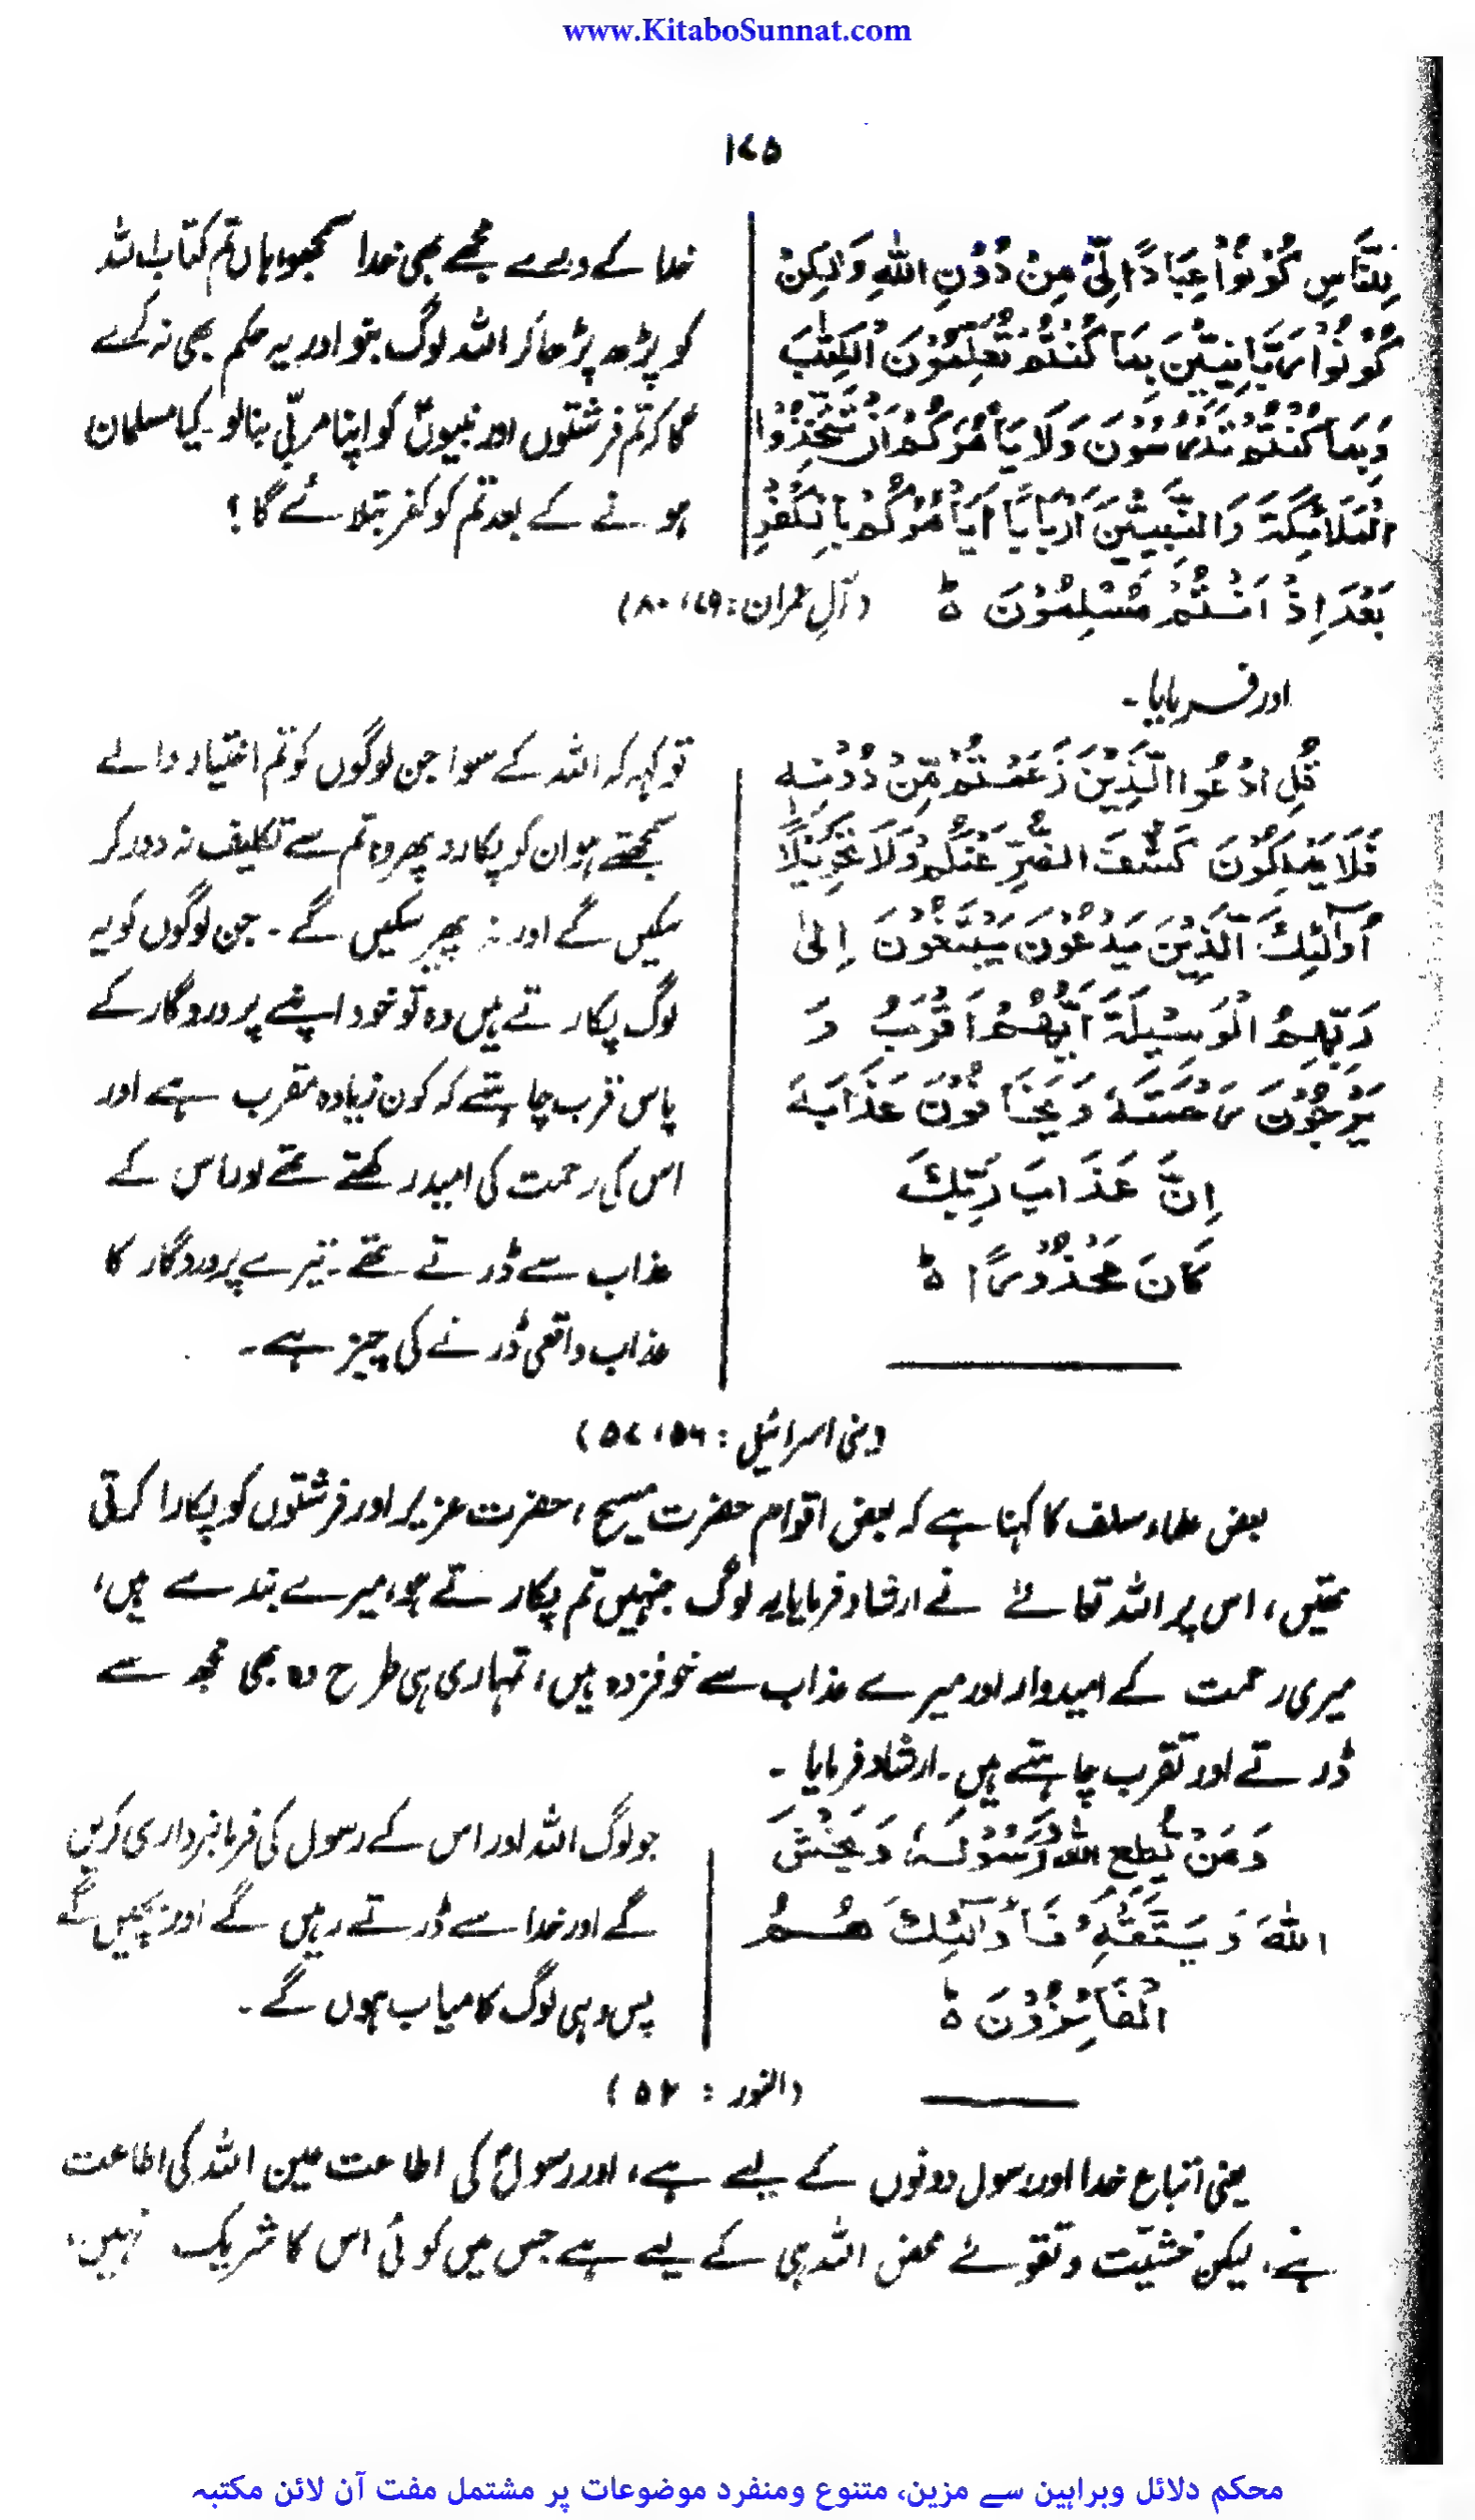 www.KitaboSunnat.com
۱۷۵
لِلنَّاسِ كُوْنُوْا عِبَادًا لِّيْ مِنْ دُوْنِ اللّٰهِ وَلٰكِنْ
كُوْنُوْا رَبَّانِيّٖنَ بِمَا كُنْتُمْ تُعَلِّمُوْنَ الْكِتٰبَ
وَبِمَا كُنْتُمْ تَدْرُسُوْنَ وَلَا يَأْمُرَكُمْ اَنْ تَتَّخِذُوا
الْمَلَائِكَةَ وَالنَّبِيّٖنَ اَرْبَابًا اَيَأْمُرُكُمْ بِالْكُفْرِ
بَعْدَ اِذْ اَنْتُمْ مُّسْلِمُوْنَ ہ
خدا کے ورے مجھے بھی خدا سمجھو، ہاں تم کتاب اللہ
کو پڑھ پڑھا کر اللہ لوگ بنو اور یہ حکم بھی نہ کرے
گا کہ تم فرشتوں اور نبیوںؑ کو اپنا مربّی بنا لو۔ کیا مسلمان
ہونے کے بعد تم کو کفر بتلائے گا؟
(آلِ عمران: ۷۹، ۸۰)
اور فرمایا۔
قُلِ ادْعُوا الَّذِيْنَ زَعَمْتُمْ مِّنْ دُوْنِهٖ
فَلَا يَمْلِكُوْنَ كَشْفَ الضُّرِّ عَنْكُمْ وَلَا تَحْوِيْلًا
اُولٰٓئِكَ الَّذِيْنَ يَدْعُوْنَ يَبْتَغُوْنَ اِلٰى
رَبِّهِمُ الْوَسِيْلَةَ اَيُّهُمْ اَقْرَبُ وَ
يَرْجُوْنَ رَحْمَتَهٗ وَيَخَافُوْنَ عَذَابَهٗ
اِنَّ عَذَابَ رَبِّكَ
كَانَ مَحْذُوْرًا ہ
تو کہہ کہ اللہ کے سوا جن لوگوں کو تم اختیار والے
سمجھتے ہو ان کو پکارو پھر وہ تم سے تکلیف نہ دور کر
سکیں گے اور نہ پھیر سکیں گے۔ جن لوگوں کو یہ
لوگ پکارتے ہیں وہ تو خود اپنے پروردگار کے
پاس قرب چاہتے کہ کون زیادہ مقرب ہے اور
اس کی رحمت کی امید رکھتے تھے اور اس کے
عذاب سے ڈرتے تھے۔ تیرے پروردگار کا
عذاب واقعی ڈرنے کی چیز ہے۔
(بنی اسرائیل: ۵۶، ۵۷)
بعض علماء سلف کا کہنا ہے کہ بعض اقوام حضرت مسیح، حضرت عزیر اور فرشتوں کو پکارا کرتی
تھیں، اس پر اللہ تعالےٰ نے ارشاد فرمایا یہ لوگ جنہیں تم پکارتے ہو، میرے بندے ہیں،
میری رحمت کے امیدوار اور میرے عذاب سے خوفزدہ ہیں، تمہاری ہی طرح وہ بھی مجھ سے
ڈرتے اور تقرب چاہتے ہیں۔ ارشاد فرمایا۔
وَمَنْ يُّطِعِ اللّٰهَ وَرَسُوْلَهٗ وَيَخْشَ
اللّٰهَ وَيَتَّقْهِ فَاُولٰٓئِكَ هُمُ
الْفَآئِزُوْنَ ہ
جو لوگ اللہ اور اس کے رسول کی فرمانبرداری کریں
گے اور خدا سے ڈرتے رہیں گے اور بچیں گے
پس وہی لوگ کامیاب ہوں گے۔
(النور: ۵۲)
یعنی اتباع خدا اور رسول دونوں کے لیے ہے، اور رسولؐ کی اطاعت عین اللہ کی اطاعت
ہے، لیکن خشیّت و تقوےٰ محض اللہ ہی کے لیے ہے جس میں کوئی اس کا شریک نہیں،
محکم دلائل وبراہین سے مزین، متنوع ومنفرد موضوعات پر مشتمل مفت آن لائن مکتبہ